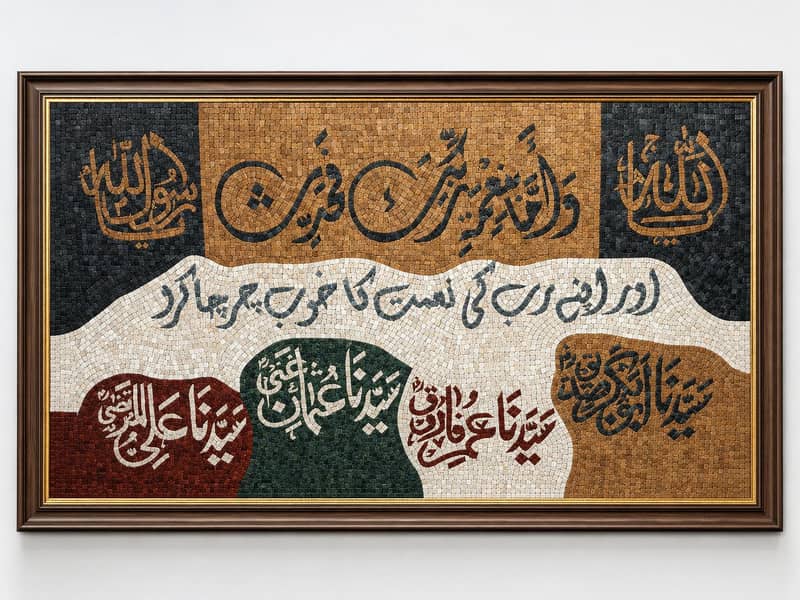 يا الله
وَأَمَّا بِنِعْمَةِ رَبِّكَ فَحَدِّثْ
يا رسول الله
اور اپنے رب کی نعمت کا خوب چرچا کرو
سَيِّدَنَا أبوبكر صديق
سَيِّدَنَا عمر فاروق
سَيِّدَنَا عُثمان غنی
سَيِّدَنَا عَلِي المرتضى